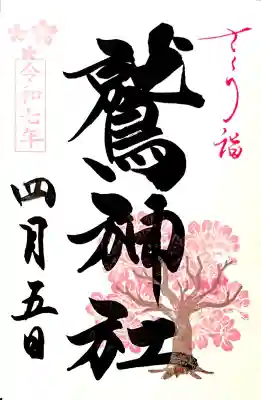 さくら詣
鷲神社
令和七年
四月五日